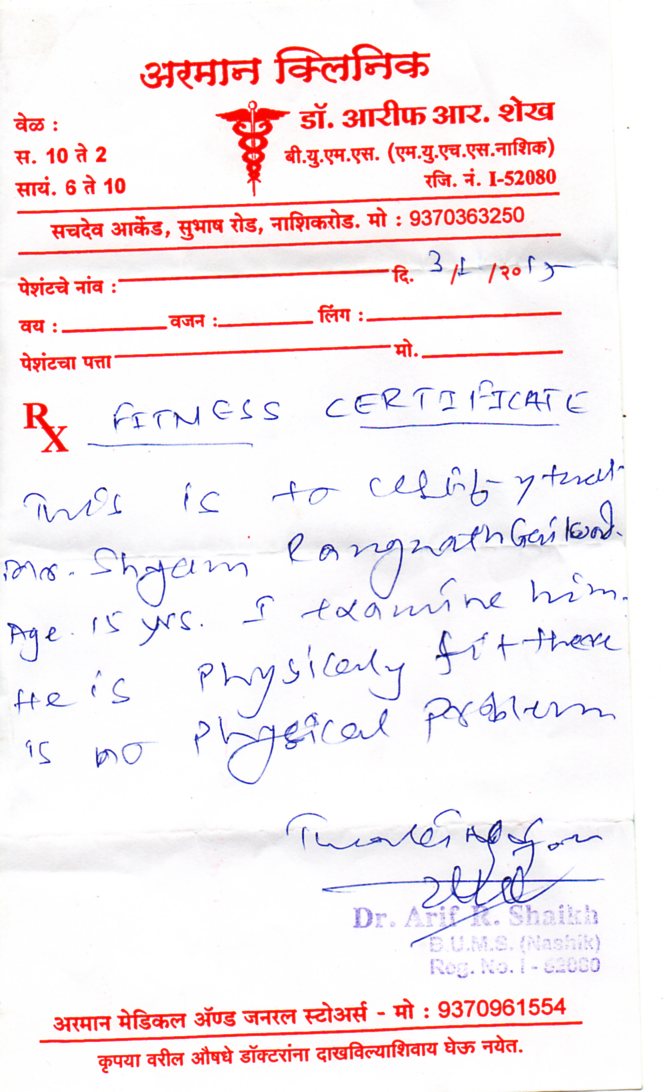 अरमान क्लिनिक
वेळ :
स. 10 ते 2
सायं. 6 ते 10
डॉ. आरीफ आर. शेख
बी.यु.एम.एस. (एम.यु.एच.एस.नाशिक)
रजि. नं. I-52080
सचदेव आर्केड, सुभाष रोड, नाशिकरोड. मो : 9370363250
पेशंटचे नांव : दि. 3/1/2015
वय : वजन : लिंग :
पेशंटचा पत्ता मो.
Rx FITNESS CERTIFICATE
This is to certify that
Mr. Shyam Rangnath
Age 15 yrs. I examine him.
He is physicaly fit there
is no physical problem
Dr. Arif R. Shaikh
B.U.M.S. (Nashik)
Reg. No. I - 52080
अरमान मेडिकल ॲण्ड जनरल स्टोअर्स - मो : 9370961554
कृपया वरील औषधे डॉक्टरांना दाखविल्याशिवाय घेऊ नयेत.